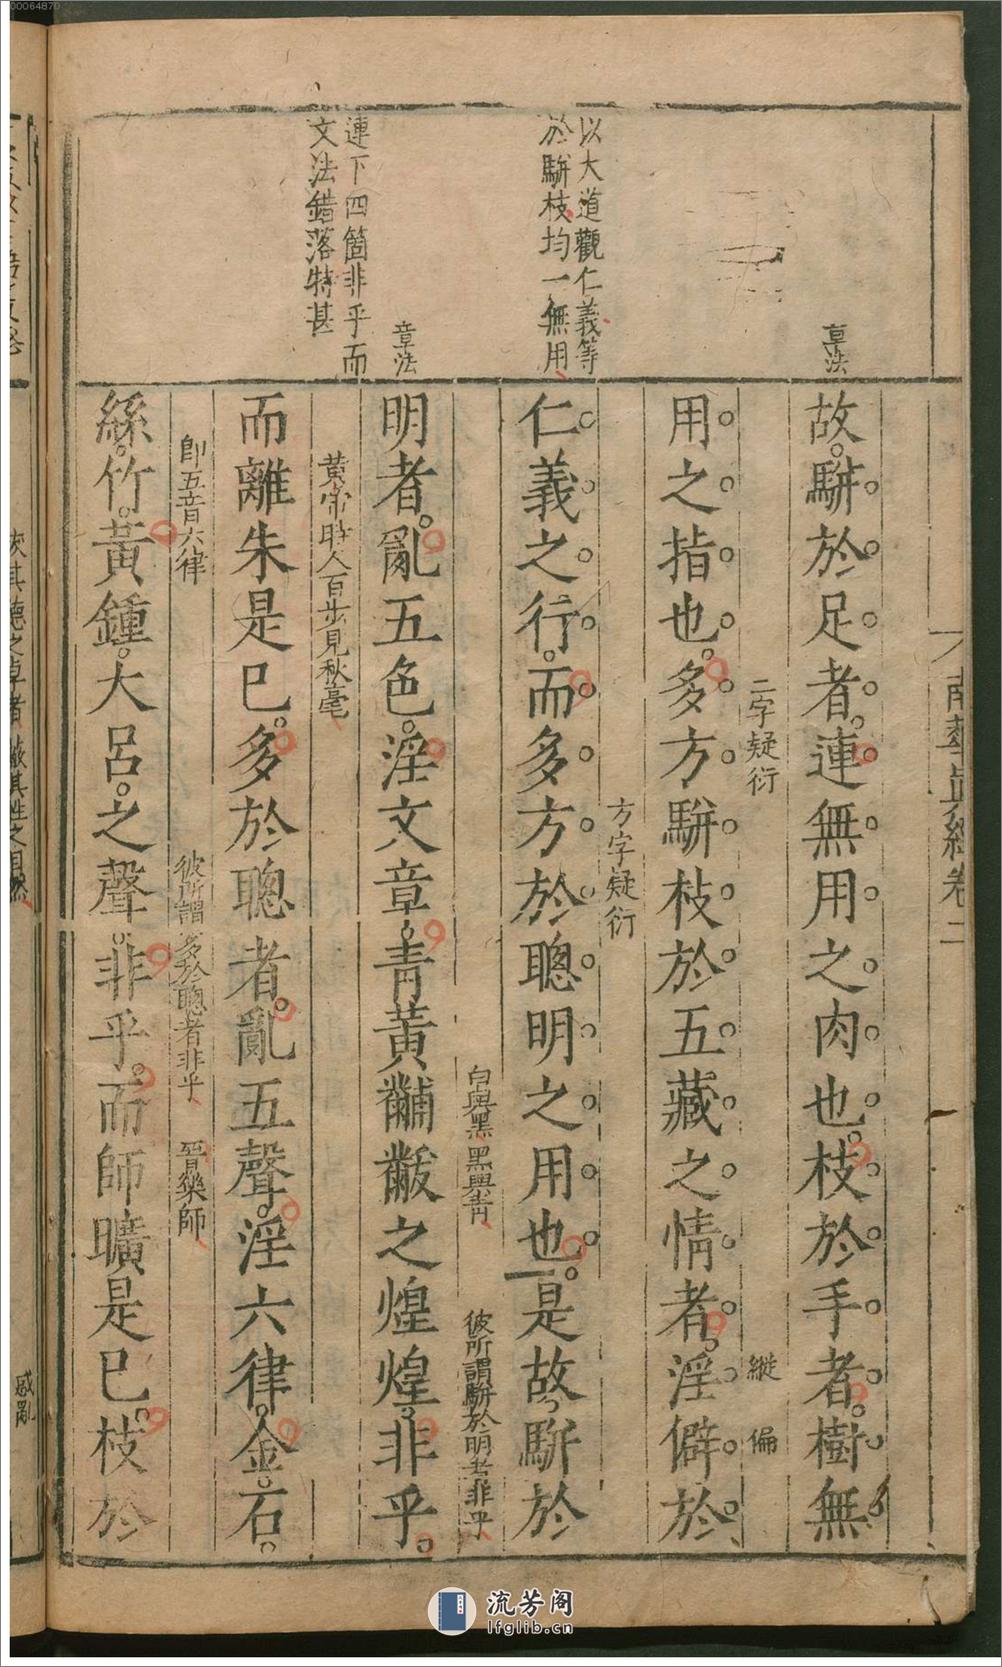 00064870
南華眞經卷二
章法
以大道觀仁義等
於駢枝均一無用
章法
連下四箇非乎而
文法錯落特甚
故駢於足者連無用之肉也枝於手者樹無
二字疑衍
縱 偏
用之指也多方駢枝於五藏之情者淫僻於
方字疑衍
仁義之行而多方於聰明之用也是故駢於
白與黑黑與青
彼所謂駢於明者非乎
明者亂五色淫文章青黃黼黻之煌煌非乎
黃帝時人百步見秋毫
而離朱是已多於聰者亂五聲淫六律金石
即五音六律
彼所謂多於聰者非乎
晉樂師
絲竹黃鍾大呂之聲非乎而師曠是已枝於
惑亂
流芳阁
lfglib.cn